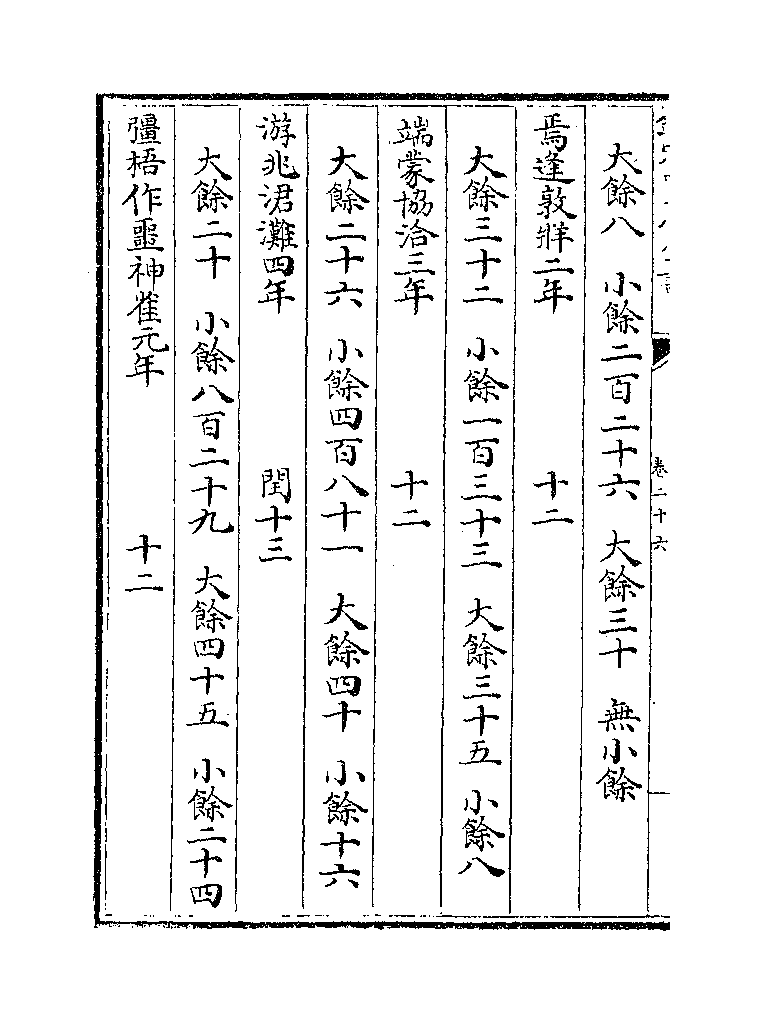 大餘八　小餘二百二十六　大餘三十　無小餘
焉逢敦牂二年　十二
大餘三十二　小餘一百三十三　大餘三十五　小餘八
端蒙協洽三年　十二
大餘二十六　小餘四百八十一　大餘四十　小餘十六
游兆涒灘四年　閏十三
大餘二十　小餘八百二十九　大餘四十五　小餘二十四
彊梧作噩神雀元年　十二
卷二十六